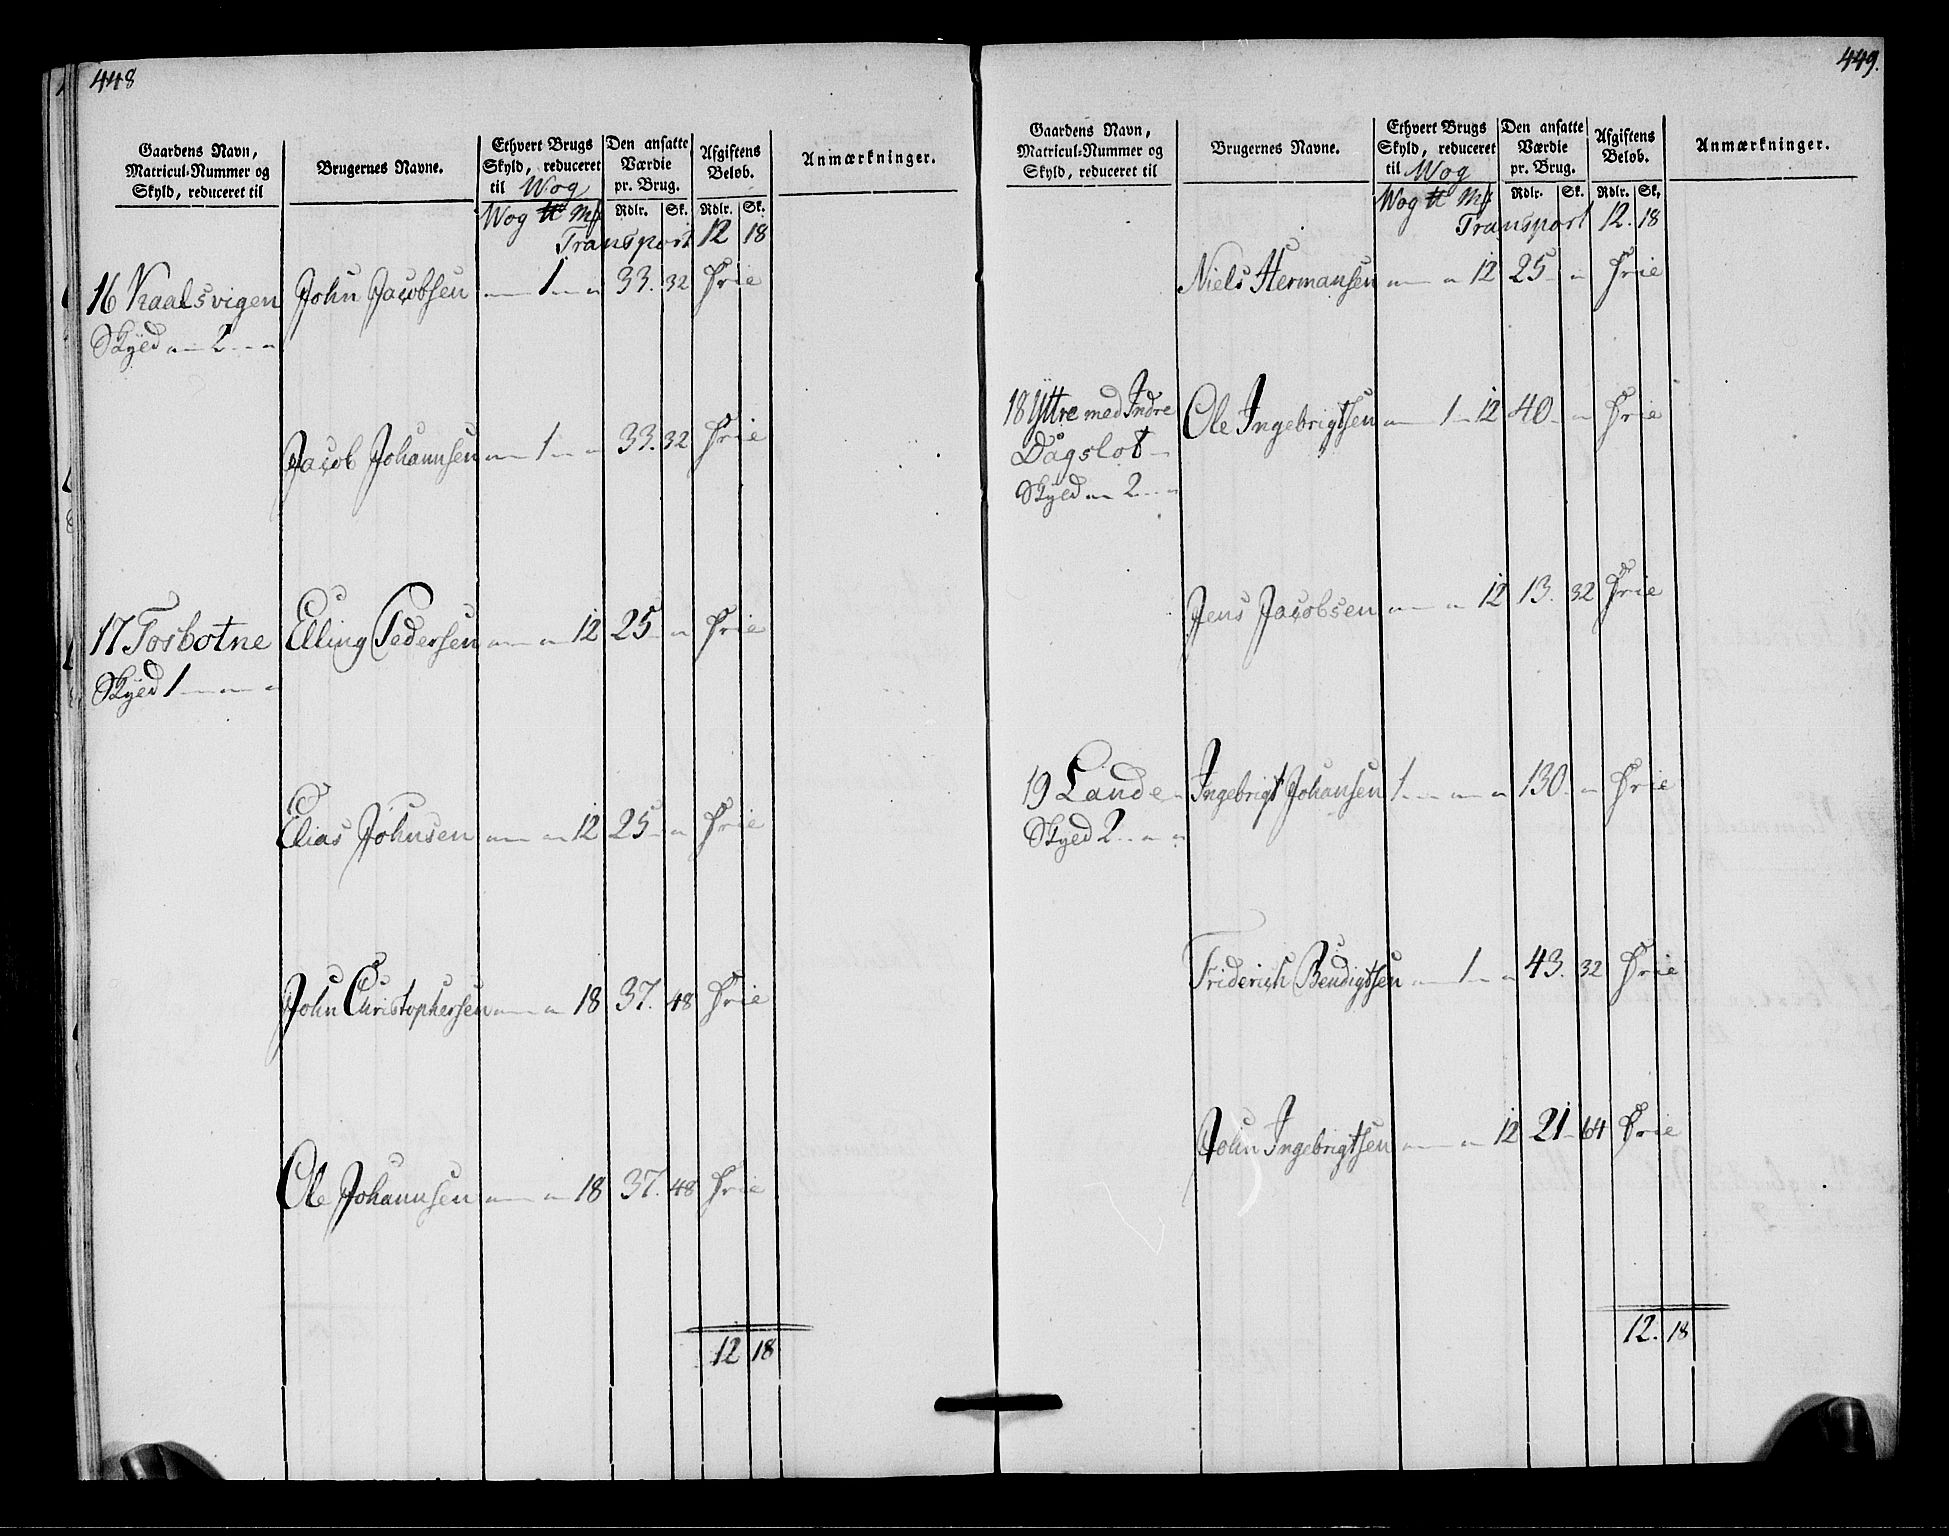 448
Gaardens Navn, Matricul-Nummer og Skyld, reduceret til
Brugernes Navne.
Ethvert Brugs Skyld, reduceret til Wog
Den ansatte Værdie pr. Brug.
Afgiftens Beløb.
Anmærkninger.
Wog ℔ Mk Rdlr. Sk. Rdlr. Sk.
Transport 12 18
16 Kaalsvigen John Jacobsen " 1 " 33. 32 Frie
Skyld " 2 "
Jacob Johannsen " 1 " 33. 32 Frie
17 Tosbotne Elling Pedersen " " 12 25 " Frie
Skyld 1 " "
Elias Johnsen " " 12 25 " Frie
John Christophersen " " 18 37. 48 Frie
Ole Johannsen " " 18 37. 48 Frie
12 18
449.
Gaardens Navn, Matricul-Nummer og Skyld, reduceret til
Brugernes Navne.
Ethvert Brugs Skyld, reduceret til Wog
Den ansatte Værdie pr. Brug.
Afgiftens Beløb.
Anmærkninger.
Wog ℔ Mk Rdlr. Sk. Rdlr. Sk.
Transport 12. 18
Niels Hermansen " " 12 25 " Frie
18 Yttre med Indre Ole Ingebrigtsen " 1 12 40 " Frie
Dagslot
Skyld " 2 "
Jens Jacobsen " " 12 13. 32 Frie
19 Lande Ingebrigt Johansen 1 " " 130 " Frie
Skyld 2 " "
Friderich Bendigtsen " 1 " 43. 32 Frie
John Ingebrigtsen " " 12 21 64 Frie
12. 18